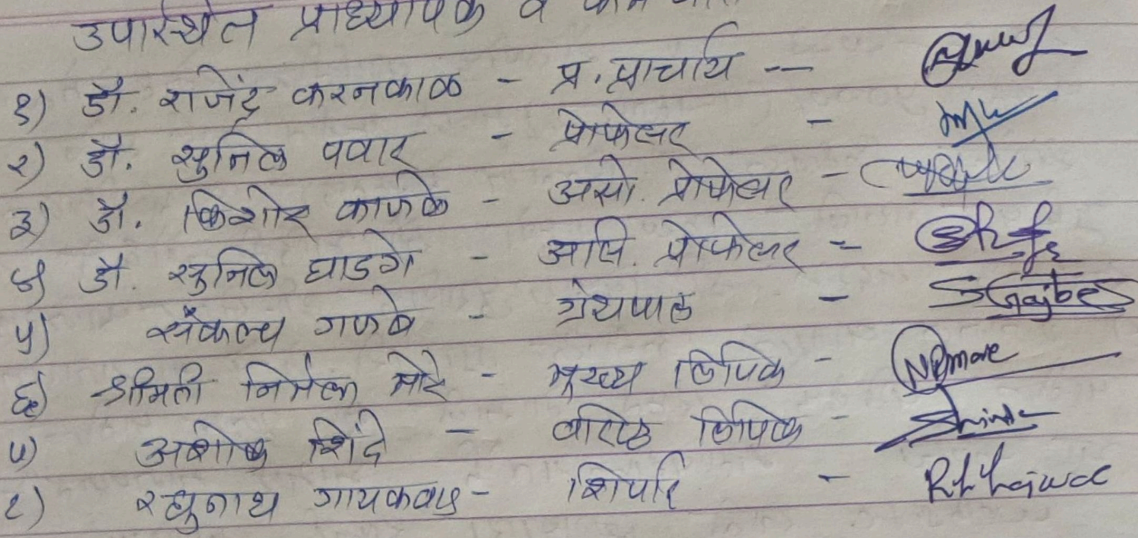 उपस्थित प्राध्यापक व
१) डॉ. राजेंद्र करनकाळ - प्र. प्राचार्य -
२) डॉ. सुनिल पवार - प्रोफेसर -
३) डॉ. किशोर काजळे - असो. प्रोफेसर -
४) डॉ. सुनिल घाडगे - असि. प्रोफेसर -
५) संकल्प गजबे - ग्रंथपाल - SGajbe
६) श्रीमती निर्मला मोरे - मुख्य लिपिक - NRmore
७) अशोक शिंदे - वरिष्ठ लिपिक - Shinde
८) रघुनाथ गायकवाड - शिपाई -